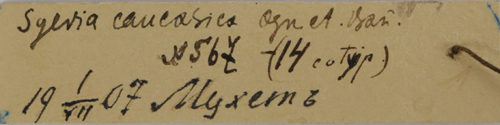 Sylvia caucasica Ogn et. Бан.
№ 567 (14 cotyp.)
19 1/VII 07 Мцхетъ